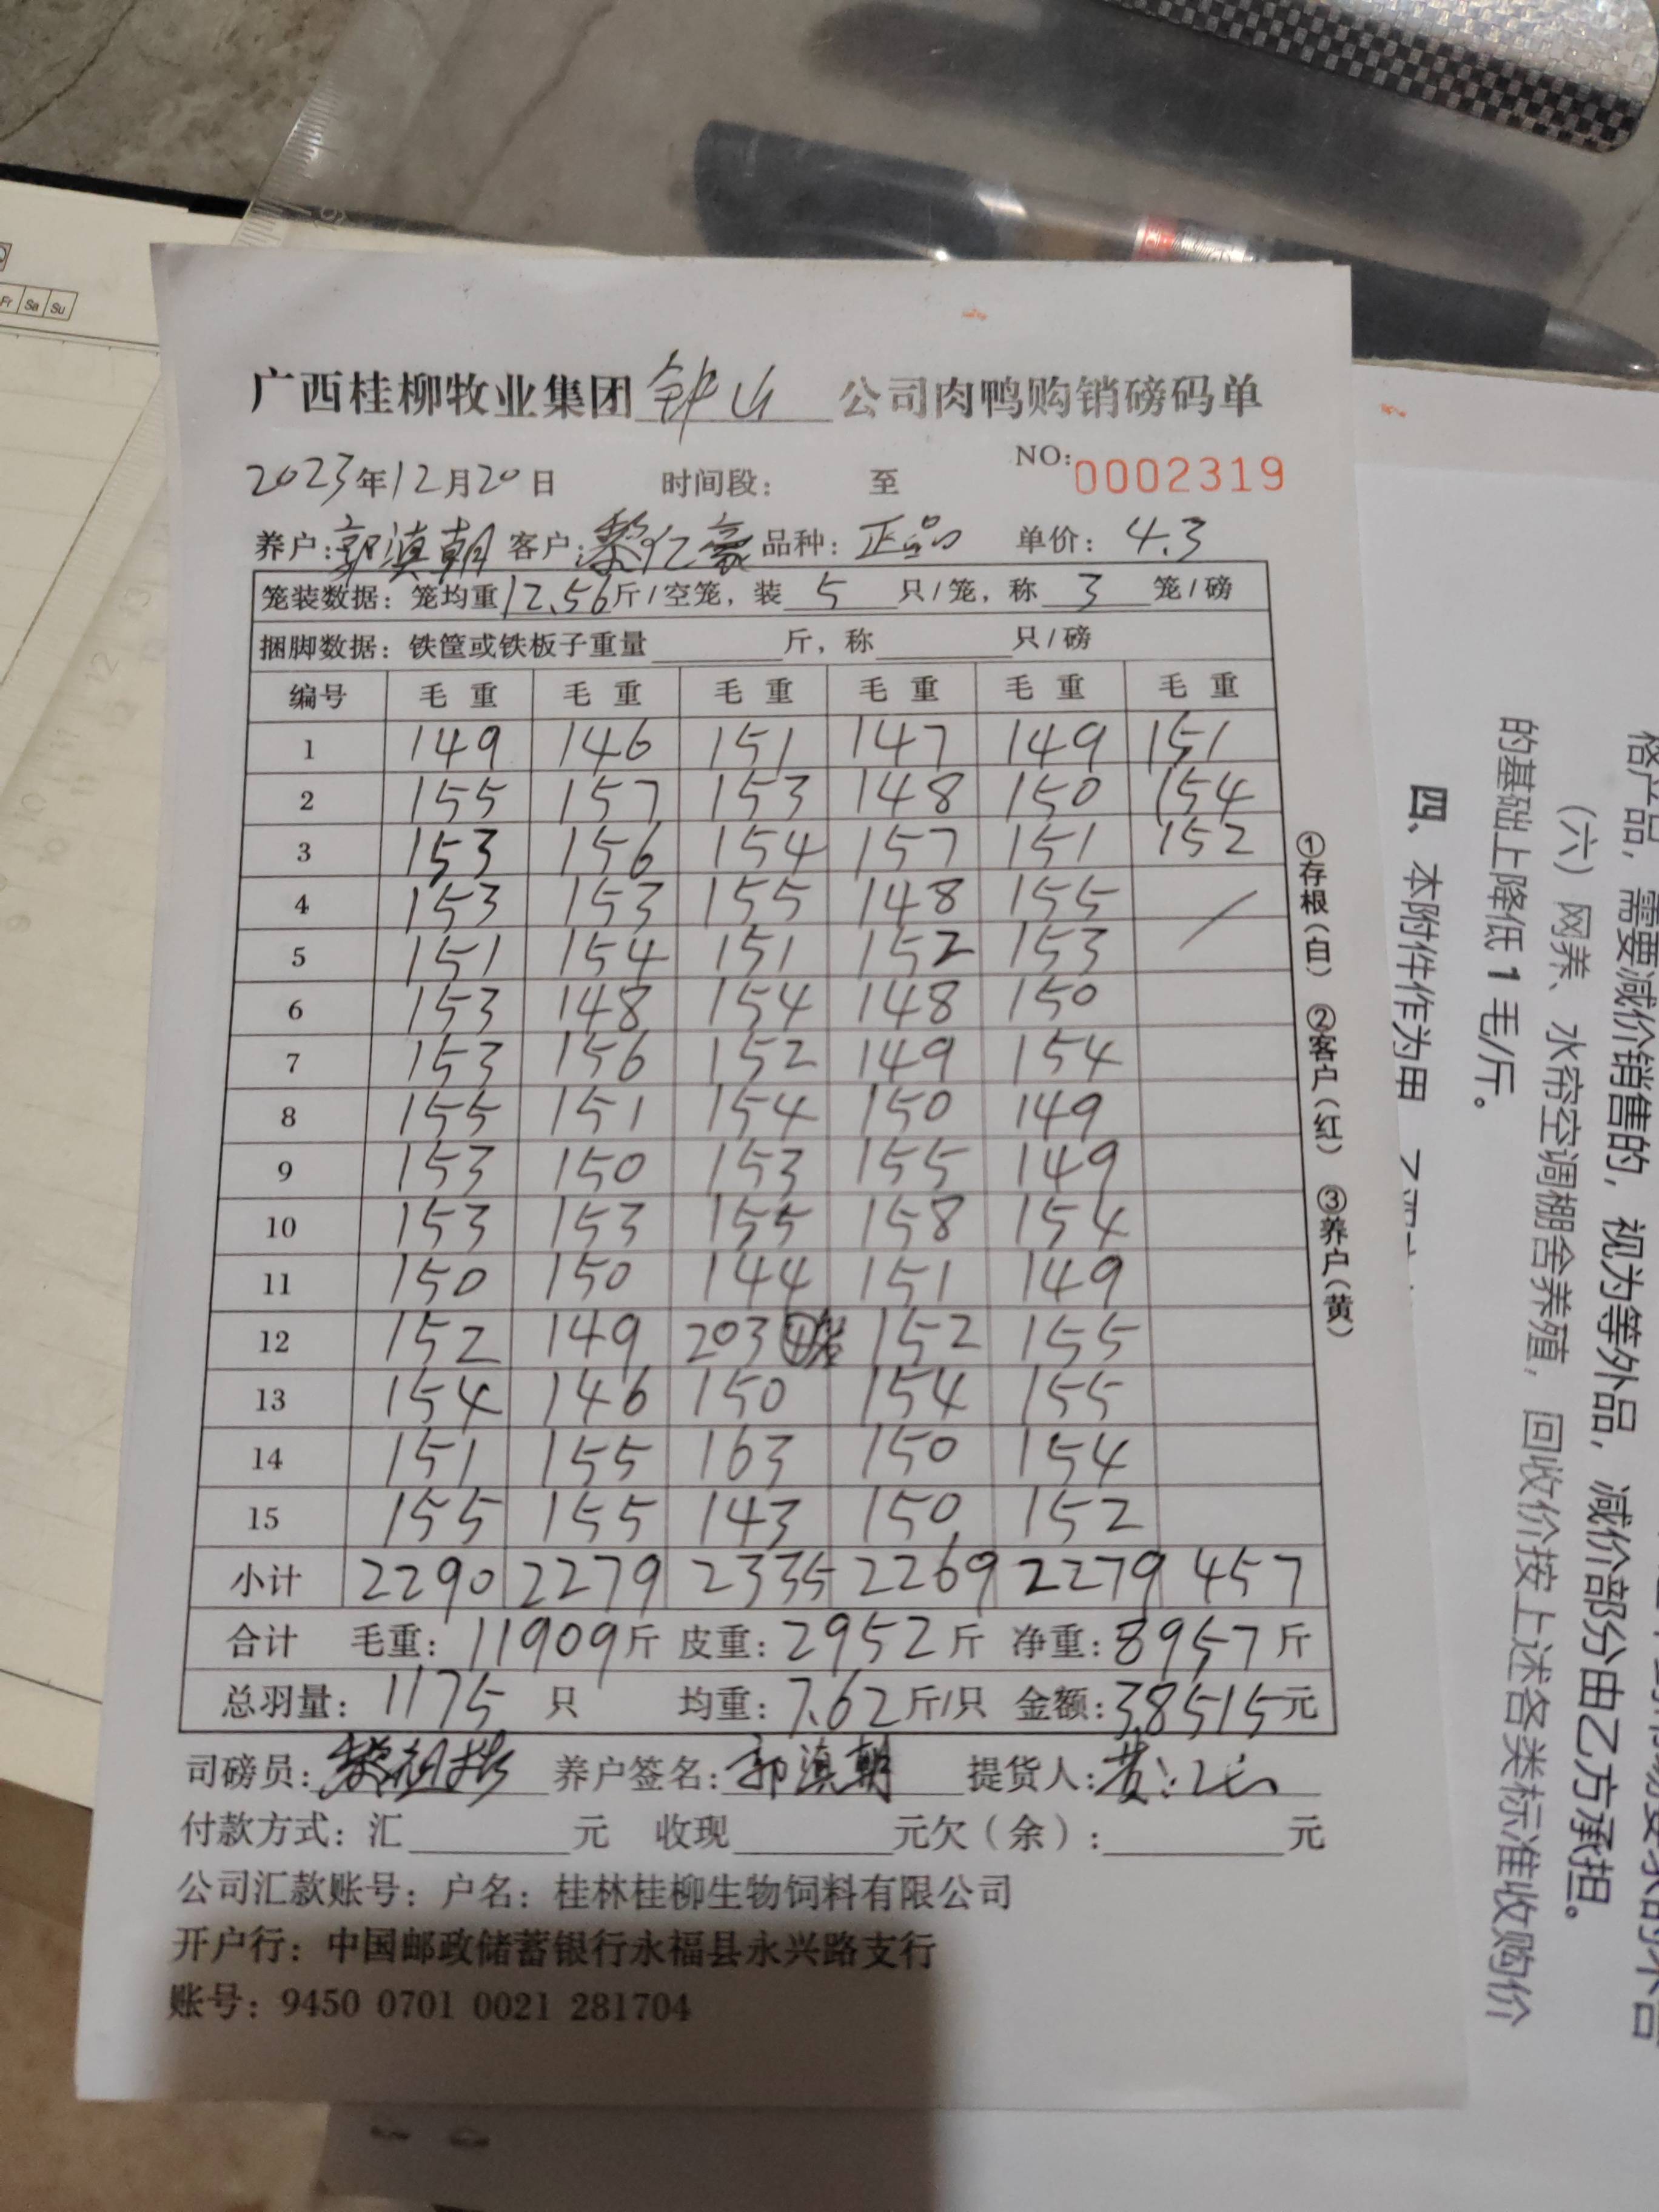 Fr Sa Su
广西桂柳牧业集团钟山公司肉鸭购销磅码单
NO:0002319
2023年12月20日 时间段: 至
养户:郭滇朝 客户:黎仁豪 品种:正品 单价:4.3
笼装数据:笼均重12.56斤/空笼,装5只/笼,称3笼/磅
捆脚数据:铁筐或铁板子重量____斤,称____只/磅
编号 毛重 毛重 毛重 毛重 毛重 毛重
1 149 146 151 147 149 151
2 155 157 153 148 150 154
3 153 156 154 157 151 152
4 153 153 155 148 155 /
5 151 154 151 152 153
6 153 148 154 148 150
7 153 156 152 149 154
8 155 151 154 150 149
9 153 150 153 155 149
10 153 153 155 158 154
11 150 150 144 151 149
12 152 149 203 ④笼 152 155
13 154 146 150 154 155
14 151 155 163 150 154
15 155 155 143 150 152
小计 2290 2279 2335 2269 2279 457
合计 毛重:11909斤 皮重:2952斤 净重:8957斤
总羽量:1175只 均重:7.62斤/只 金额:38515元
司磅员: 养户签名:郭滇朝 提货人:
付款方式:汇____元 收现____元欠(余):____元
公司汇款账号:户名:桂林桂柳生物饲料有限公司
开户行:中国邮政储蓄银行永福县永兴路支行
账号:9450 0701 0021 281704
①存根(白) ②客户(红) ③养户(黄)
格产品,需要减价销售的,视为等外品,减价部分由乙方承担。
(六)网养、水帘空调棚舍养殖,回收价按上述各类标准收购价
的基础上降低1毛/斤。
四、本附件作为甲